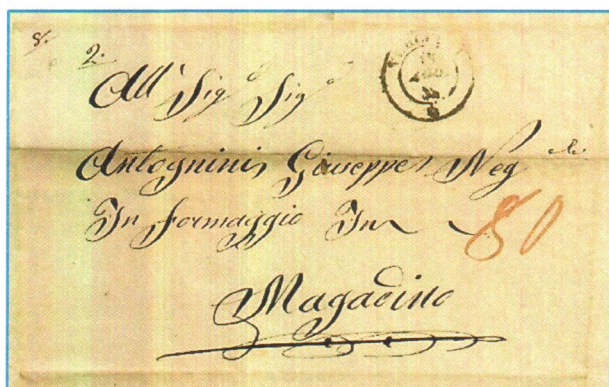 2.
All' Sig.e Sig.e
Antognini Giuseppe Neg.te
In formaggio In
80
Magadino